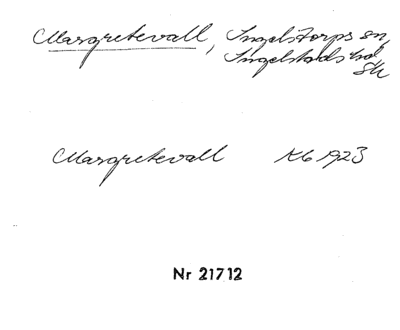 Margretevall, Ingelstorps sn,
Ingelstads hd
Sk
Margretevall Kb 1923
Nr 21712